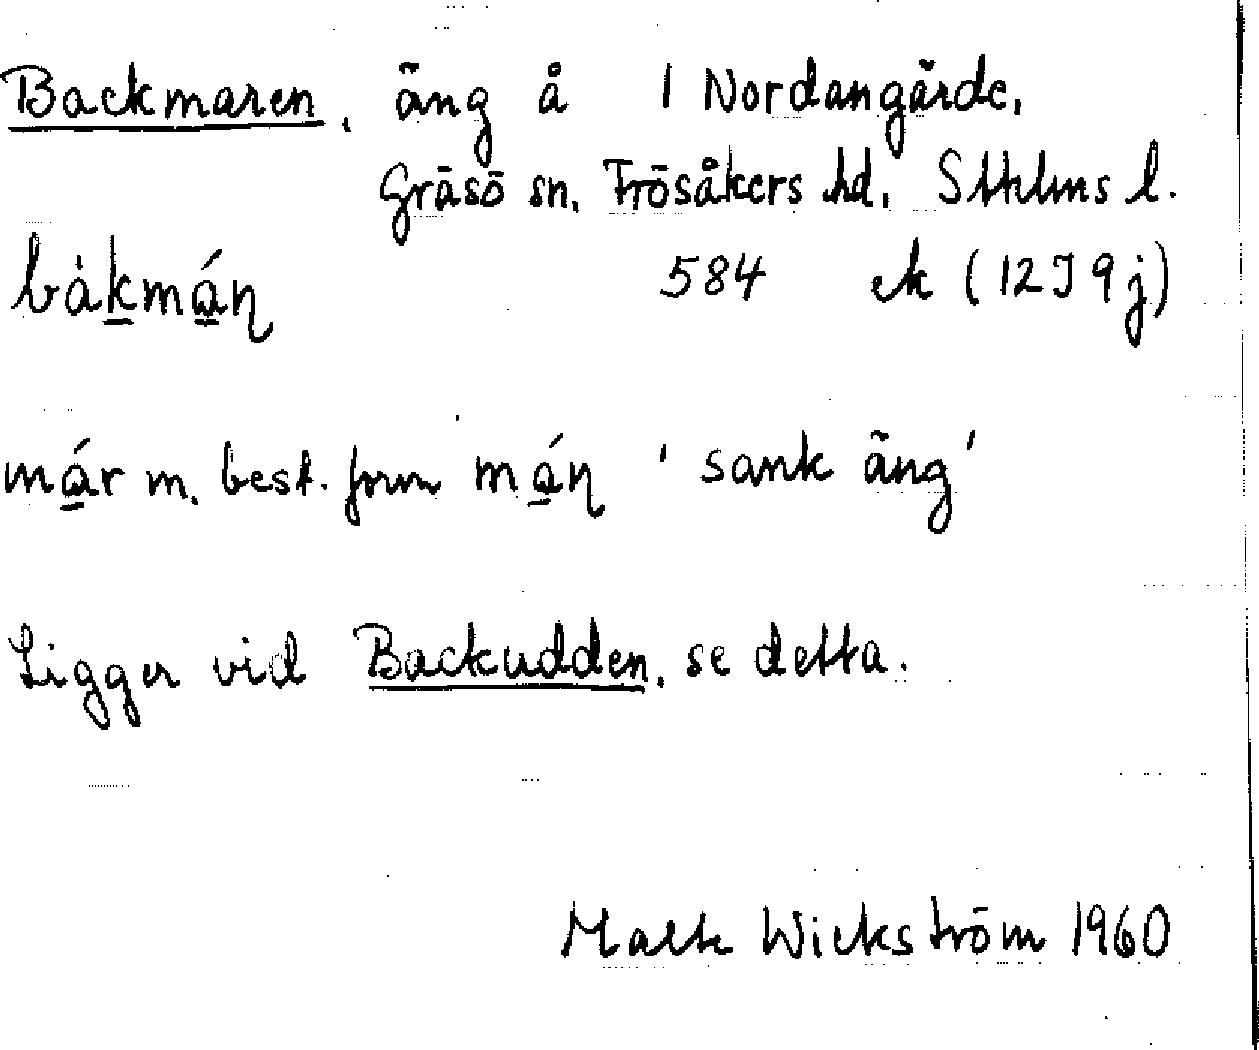 Backmaren, äng å 1 Nordangärde,
Gräsö sn, Frösåkers hd, Sthlms l.
bàkmáņ 584 ek (12J 9j)
már m. best. form máņ 'sank äng'
Ligger vid Backudden, se detta.
Wickström 1960